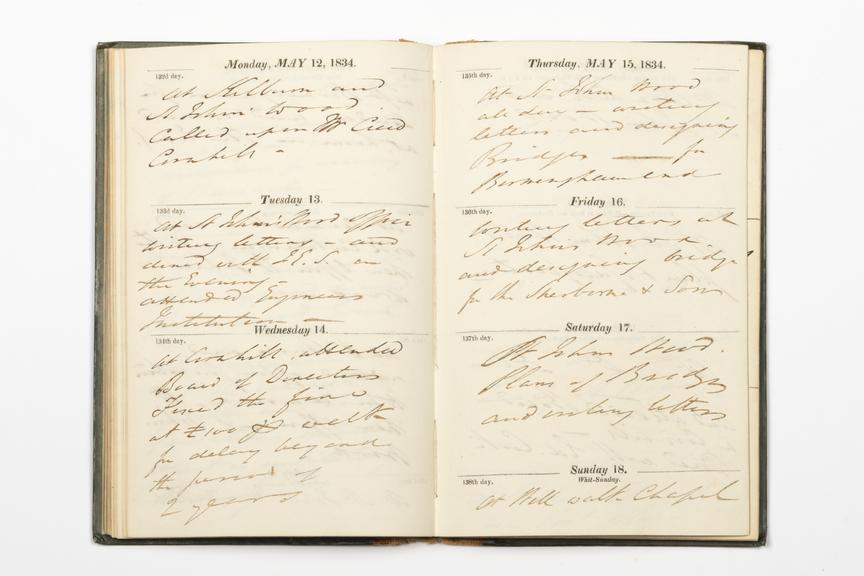 Monday, MAY 12, 1834.
132d day.
At Kilburn and
St Johns Wood
Called upon Mr Creed
Cornhill -
Tuesday 13.
133d day.
At St John's Wood Office
writing letters - and
dined with
the Evening -
attended Engineers
Institution -
Wednesday 14.
134th day.
At Cornhill. attended
Board of Directors
Fixed the fine
at £100 P week
for delay beyond
the period of
2 years
Thursday, MAY 15, 1834.
135th day.
At St Johns Wood
all day - writing
letters and designing
Bridges — for
Birmingham end
Friday 16.
136th day.
writing letters at
St Johns Wood
and designing bridge
for the Sherborne &
Saturday 17.
137th day.
St Johns Wood.
Plans of Bridges
and writing letters
Sunday 18.
Whit-Sunday.
138th day.
At Well walk Chapel